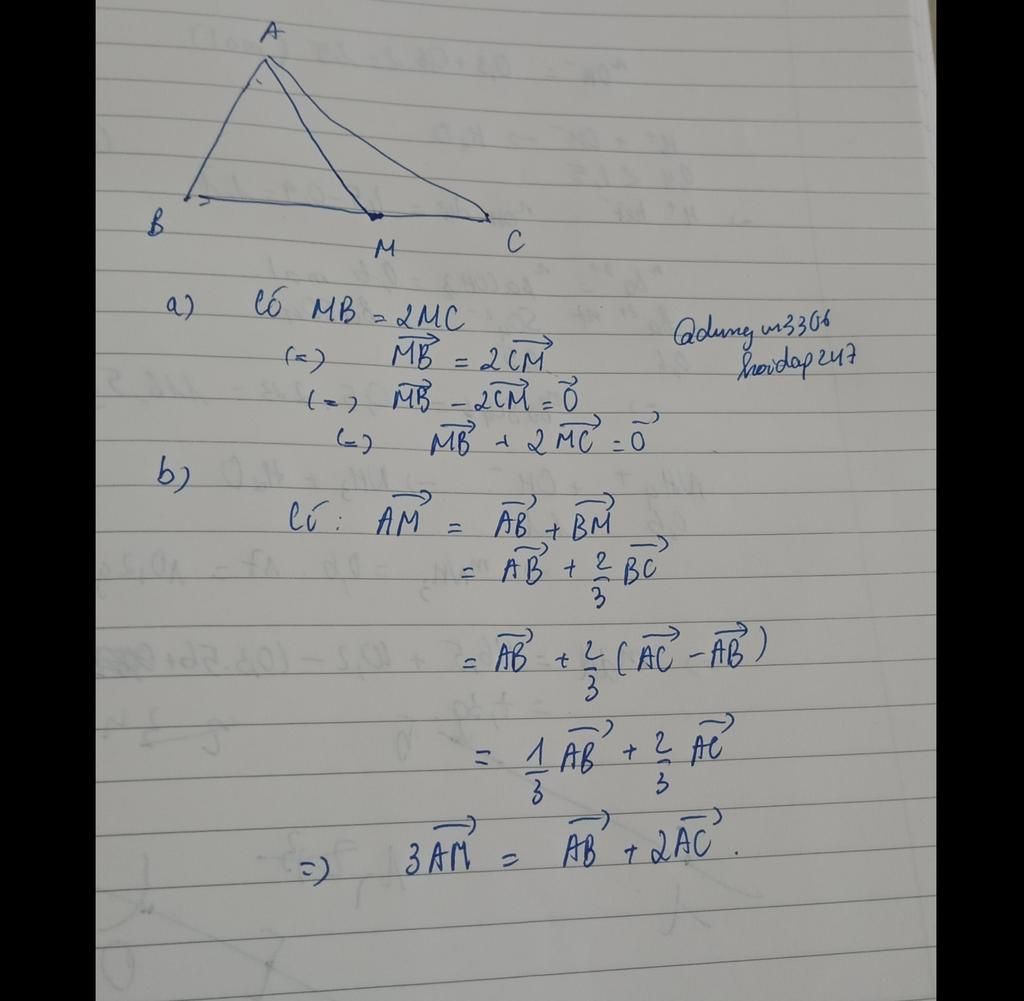 A
B
M
C
a) Có MB = 2MC
(=) $\overrightarrow{MB} = 2\overrightarrow{CM}$
(=) $\overrightarrow{MB} - 2\overrightarrow{CM} = \vec{0}$
(=) $\overrightarrow{MB} + 2\overrightarrow{MC} = \vec{0}$
@dungvu3306
hoidap247
b)
Có: $\overrightarrow{AM} = \overrightarrow{AB} + \overrightarrow{BM}$
$= \overrightarrow{AB} + \frac{2}{3}\overrightarrow{BC}$
$= \overrightarrow{AB} + \frac{2}{3}(\overrightarrow{AC} - \overrightarrow{AB})$
$= \frac{1}{3}\overrightarrow{AB} + \frac{2}{3}\overrightarrow{AC}$
=) $3\overrightarrow{AM} = \overrightarrow{AB} + 2\overrightarrow{AC}$.